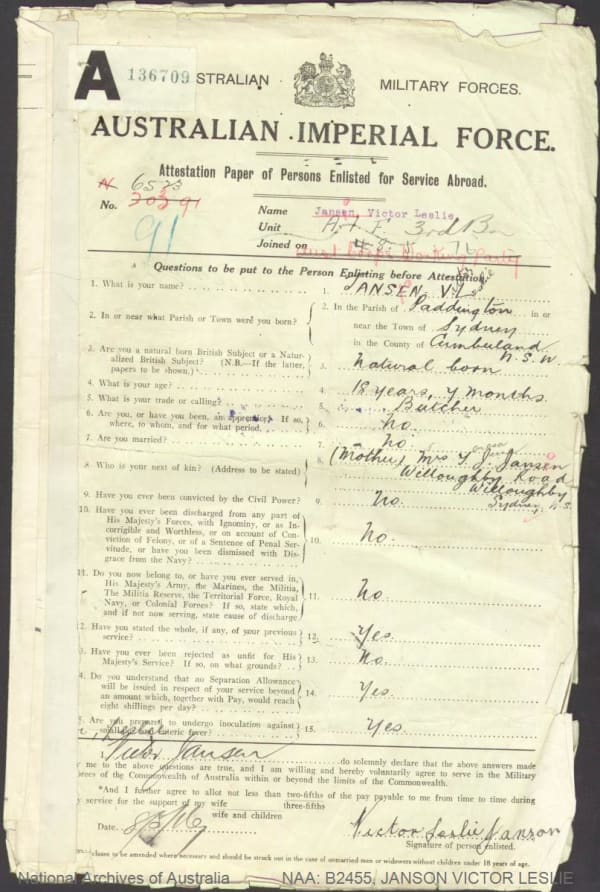 A 136709
STRALIAN MILITARY FORCES.
AUSTRALIAN IMPERIAL FORCE.
Attestation Paper of Persons Enlisted for Service Abroad.
No. 6573
91
Name Jansen, Victor Leslie
Unit A.I.F. 3rd Bn
Joined on
Questions to be put to the Person Enlisting before Attestation.
1. What is your name? 1. JANSEN V.L.
2. In or near what Parish or Town were you born? 2. In the Parish of Paddington in or
near the Town of Sydney
in the County of Cumberland
N.S.W
3. Are you a natural born British Subject or a Natur-
alized British Subject? (N.B.—If the latter,
papers to be shown.) 3. Natural born
4. What is your age? 4. 18 years, 7 months.
5. What is your trade or calling? 5. Butcher
6. Are you, or have you been, an apprentice? If so,
where, to whom, and for what period. 6. No.
7. Are you married? 7. No.
8. Who is your next of kin? (Address to be stated) 8. (Mother) Mrs Jansen
Willoughby Road
Willoughby
Sydney N.S.
9. Have you ever been convicted by the Civil Power? 9. No.
10. Have you ever been discharged from any part of
His Majesty's Forces, with Ignominy, or as In-
corrigible and Worthless, or on account of Con-
viction of Felony, or of a Sentence of Penal Ser-
vitude, or have you been dismissed with Dis-
grace from the Navy? 10. No.
11. Do you now belong to, or have you ever served in,
His Majesty's Army, the Marines, the Militia,
The Militia Reserve, the Territorial Force, Royal
Navy, or Colonial Forces? If so, state which,
and if not now serving, state cause of discharge 11. No.
2. Have you stated the whole, if any, of your previous
service? 12. Yes.
3. Have you ever been rejected as unfit for His
Majesty's Service? If so, on what grounds? 13. No.
4. Do you understand that no Separation Allowance
will be issued in respect of your service beyond
an amount which, together with Pay, would reach
eight shillings per day? 14. Yes.
5. Are you prepared to undergo inoculation against
smallpox and enteric fever? 15. Yes.
Leslie
I, Victor Jansen do solemnly declare that the above answers made
by me to the above questions are true, and I am willing and hereby voluntarily agree to serve in the Military
orces of the Commonwealth of Australia within or beyond the limits of the Commonwealth.
*And I further agree to allot not less than two-fifths of the pay payable to me from time to time during
my service for the support of my wife three-fifths
wife and children
Date 8/5/16
Victor Leslie Janson
Signature of person enlisted.
clause to be amended where necessary and should be struck out in the case of unmarried men or widowers without children under 18 years of age.
National Archives of Australia NAA: B2455, JANSON VICTOR LESLIE